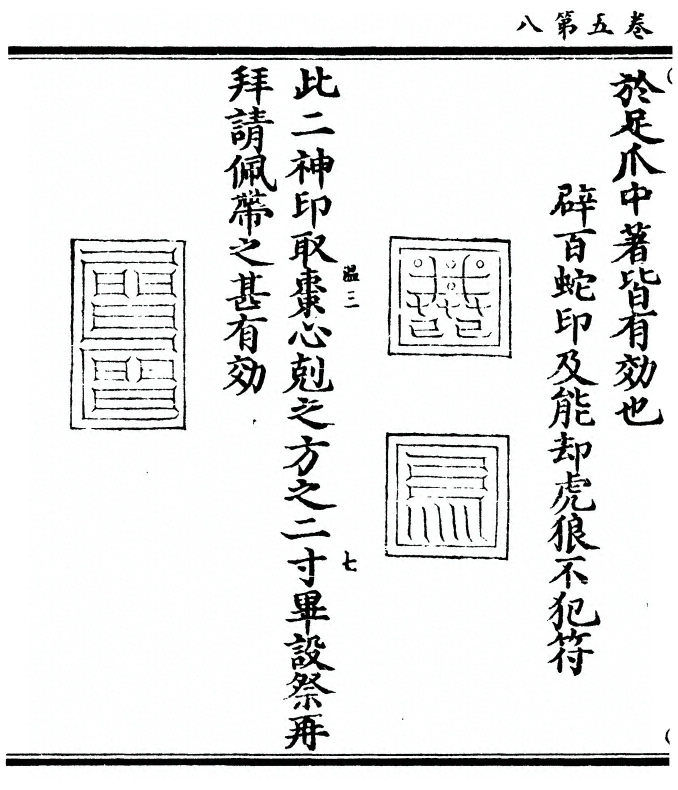 卷五第八
於足爪中著皆有効也
辟百蛇印及能却虎狼不犯符
温三
七
此二神印取棗心剋之方之二寸畢設祭再
拜請佩帶之甚有効